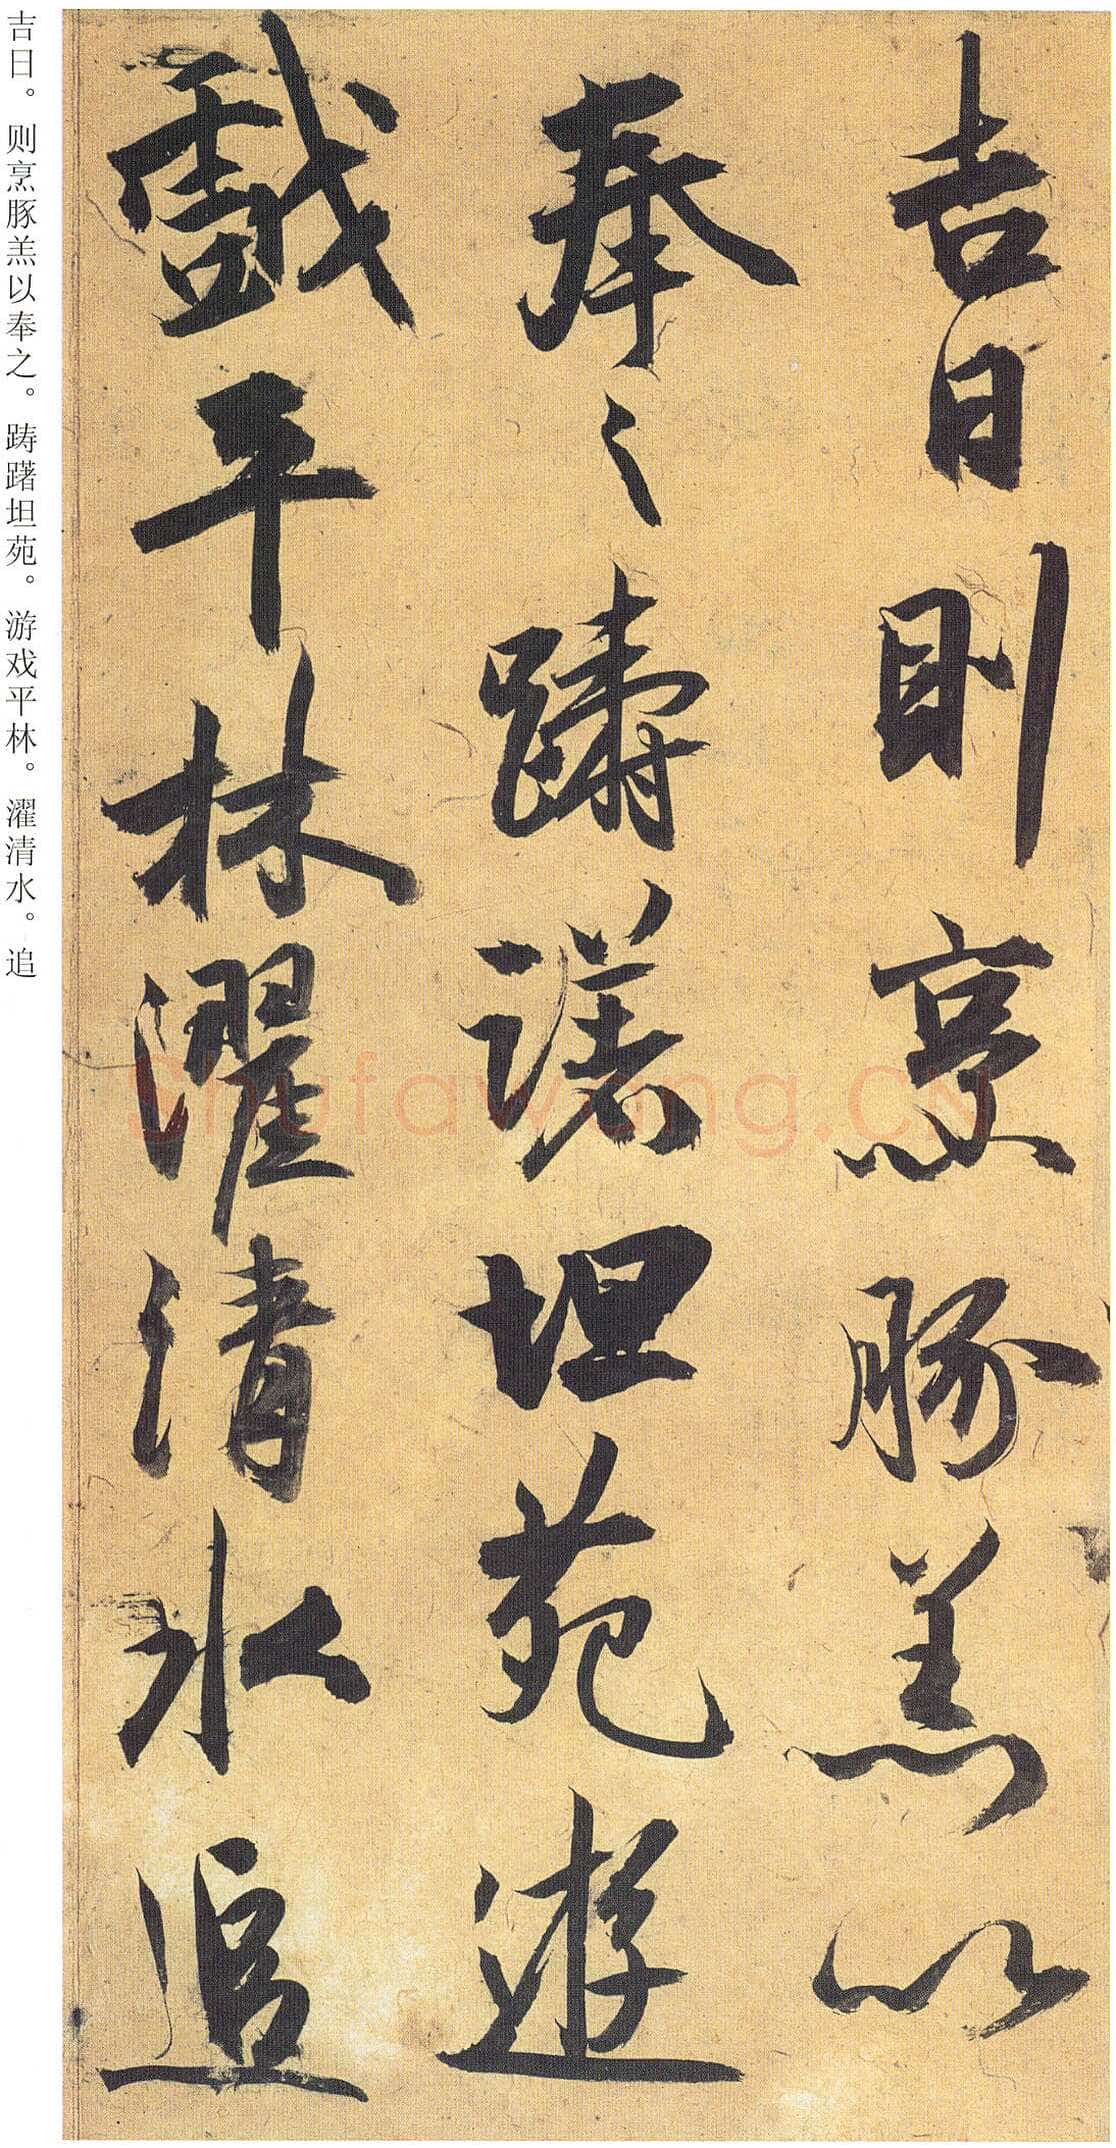 吉日則烹豚羔以
奉之躊躇坦苑遊
戲平林濯清水追
吉日。则烹豚羔以奉之。踌躇坦苑。游戏平林。濯清水。追
Shufawang.cn